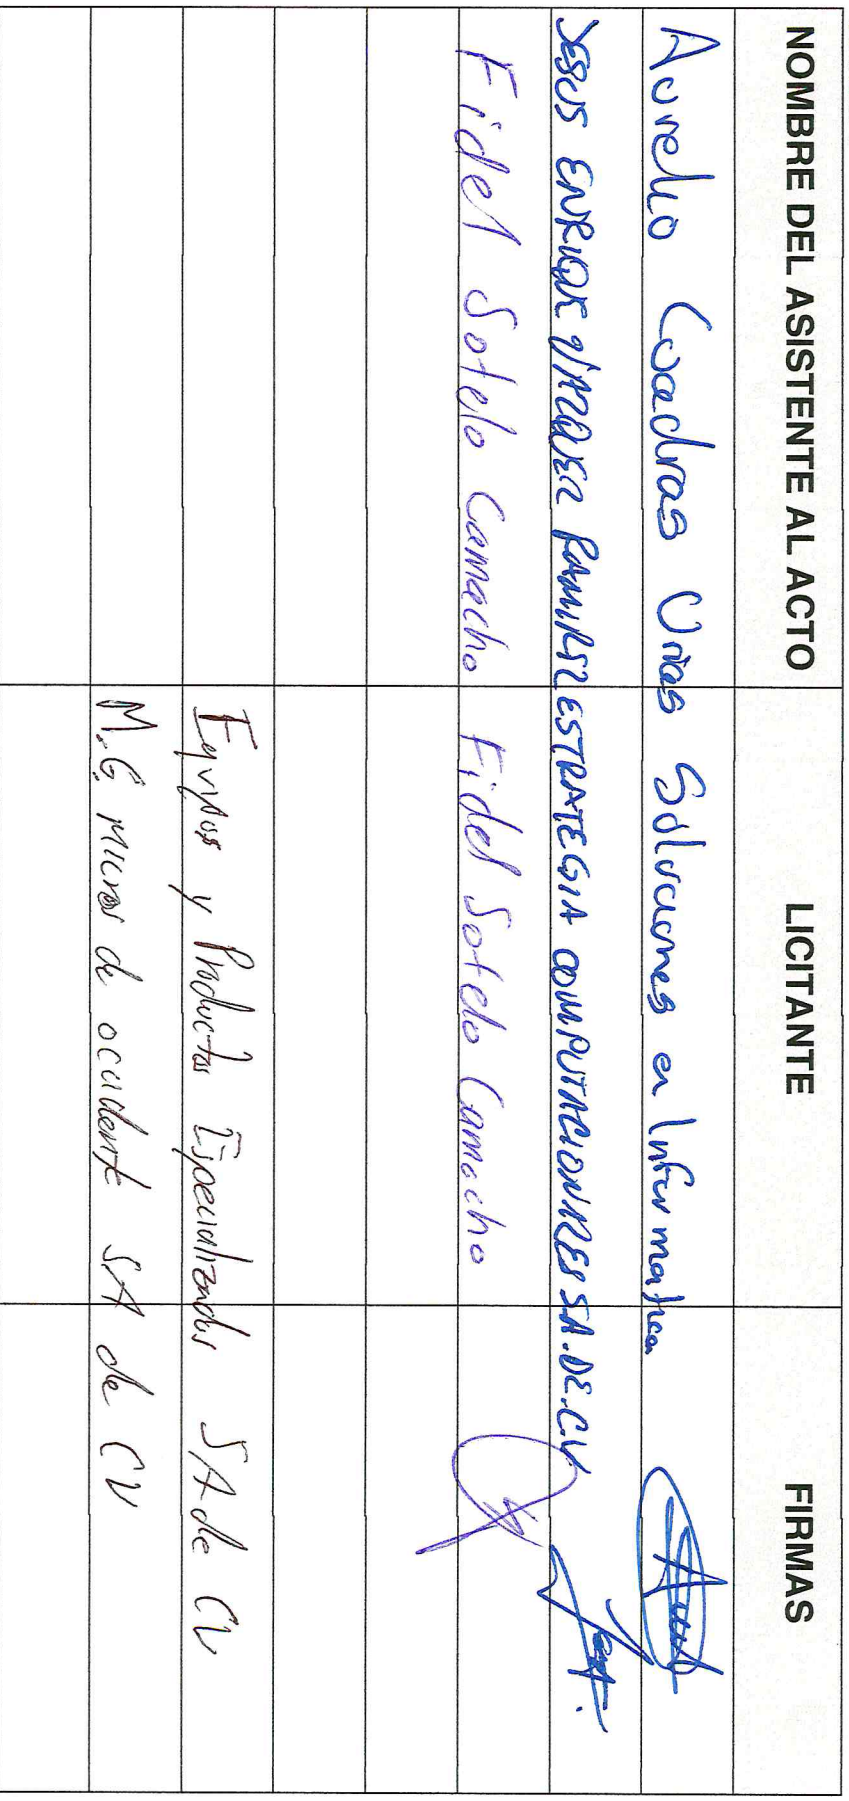 NOMBRE DEL ASISTENTE AL ACTO LICITANTE FIRMAS
Aurelio Cuadras Urias Soluciones en Informatica
JESUS ENRIQUE VAZQUEZ RAMIREZ ESTRATEGIA COMPUTACIONES S.A. DE. C.V.
Fidel Sotelo Camacho Fidel Sotelo Camacho
Equipos y Productos Especializados SA de CV
M.G. Micros de occidente SA de CV